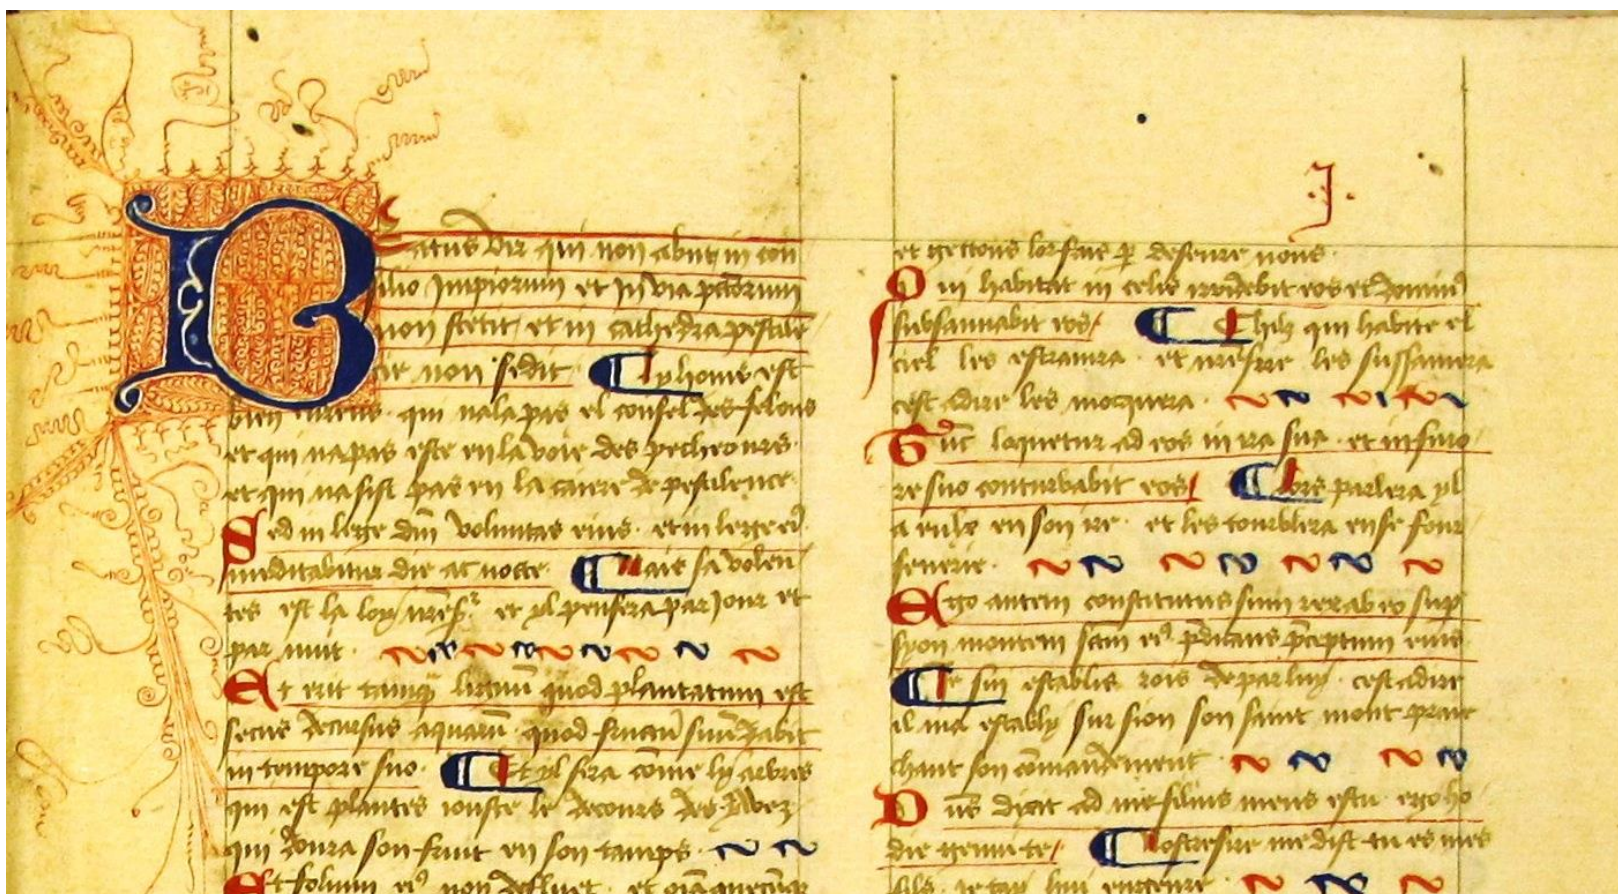 I
Beatus vir qui non abiit in con
silio impiorum et in via pctorum
non stetit et in cathedra pestile
cie non sedit ¶ Ly homs est
bien eureus qui nala pas el consel des felons
et qui na pas este en la voie des pecheours
et qui na sist pas en la caiere de pestilence
Sed in lege dni voluntas eius et in lege ei
meditabitur die ac nocte ¶ Mais sa volen
tes est la loy et yl pensera par jour et
par nuit
Et erit tamq lignu quod plantatum est
secus decursus aquaru quod fructu suu dabit
in tempore suo ¶ Et yl sera come ly arbres
qui est plantes iouste le decours des
qui donra son fruit en son tamps
Et folium ei non defluet et oia quecuq
et gettons lor sus de deseure nous
Qui habitat in celis irridebit eos et domin
subsannabit eos ¶ Chilz qui habite el
ciel les et les
cest adire les moquera
Tuc loquetur ad eos in ira sua et in furo
re suo conturbabit eos ¶ Lors parlera yl
a eulx en son ire et les tourblera en se four
senerie
Ego autem constitutus sum rex ab eo sup
syon montem scm ei pdicans pceptum eius
¶ Je sui establis rois de par luy cest adire
il ma estably sur sion son saint mont
chant son comandement
Dns dixit ad me filius meus es tu ego ho
die genui te ¶ Nostre sire me dist tu es mes
fils ie tay hui engenre